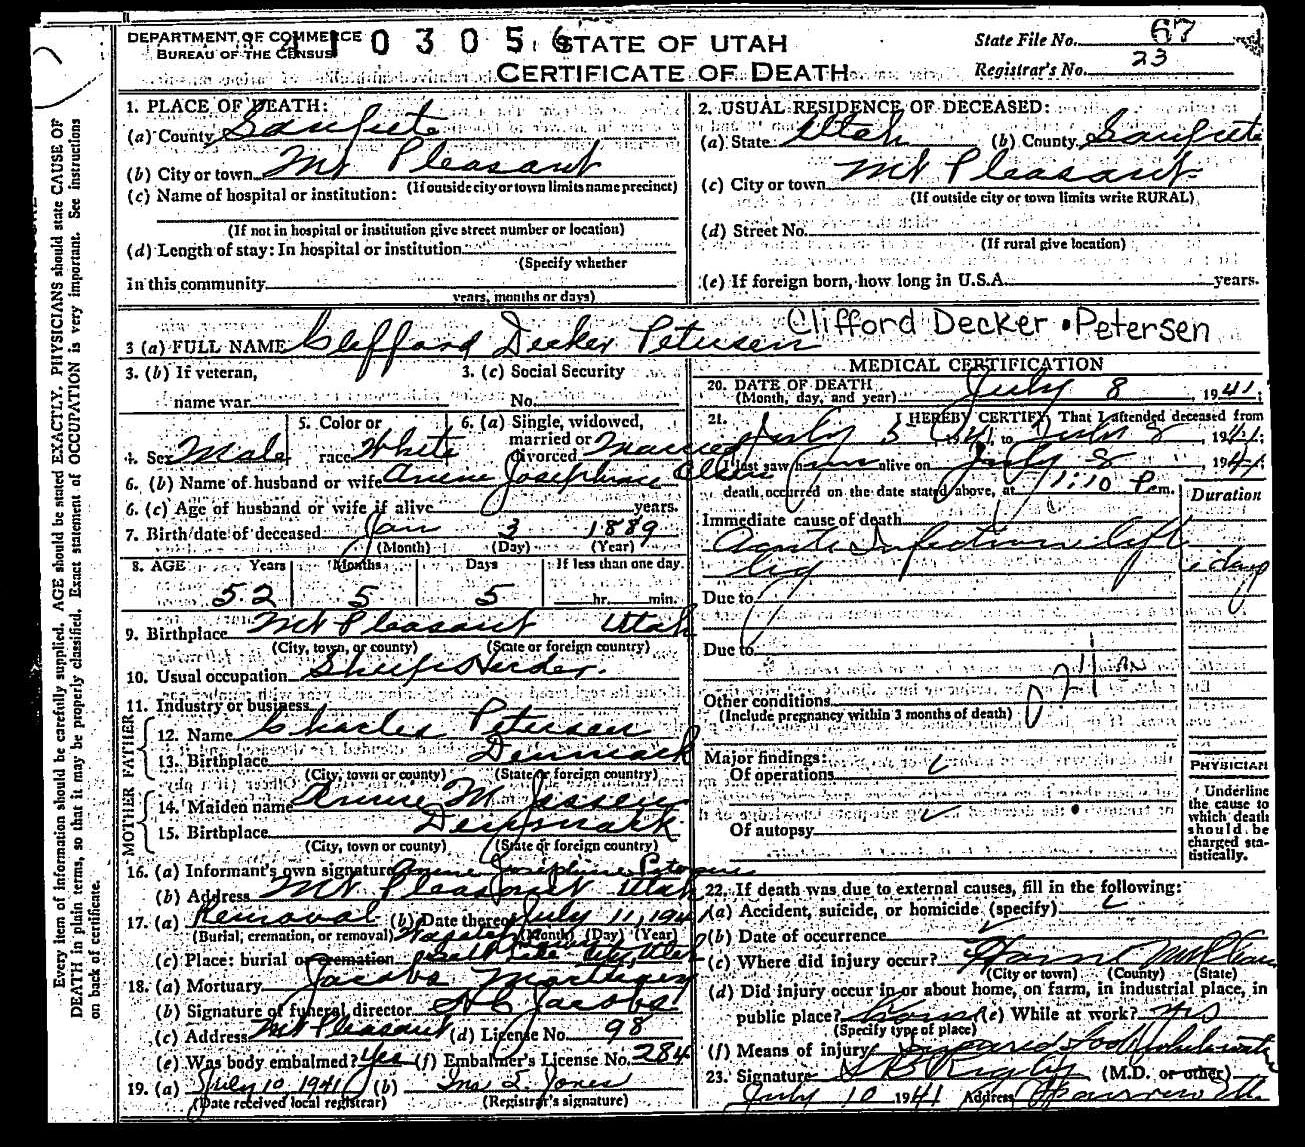 DEPARTMENT OF COMMERCE
BUREAU OF THE CENSUS
103056
STATE OF UTAH
CERTIFICATE OF DEATH
State File No. 67
Registrar's No. 23
Every item of information should be carefully supplied. AGE should be stated EXACTLY. PHYSICIANS should state CAUSE OF
DEATH in plain terms, so that it may be properly classified. Exact statement of OCCUPATION is very important. See instructions
on back of certificate.
1. PLACE OF DEATH:
(a) County Sanpete
(b) City or town Mt Pleasant
(If outside city or town limits name precinct)
(c) Name of hospital or institution:
(If not in hospital or institution give street number or location)
(d) Length of stay: In hospital or institution
(Specify whether
In this community
years, months or days)
2. USUAL RESIDENCE OF DECEASED:
(a) State Utah (b) County Sanpete
(c) City or town Mt Pleasant
(If outside city or town limits write RURAL)
(d) Street No.
(If rural give location)
(e) If foreign born, how long in U.S.A. years.
3 (a) FULL NAME Clifford Decker Petersen
Clifford Decker Petersen
3. (b) If veteran,
name war
3. (c) Social Security
No.
4. Sex Male
5. Color or
race White
6. (a) Single, widowed,
married or
divorced Married
6. (b) Name of husband or wife Annie Josephine Olsen
6. (c) Age of husband or wife if alive years.
7. Birth date of deceased Jan 3 1889
(Month) (Day) (Year)
8. AGE Years Months Days If less than one day
52 5 5 hr. min.
9. Birthplace Mt Pleasant Utah
(City, town, or county) (State or foreign country)
10. Usual occupation Sheep Herder.
11. Industry or business
FATHER
12. Name Charles Petersen
13. Birthplace Denmark
(City, town or county) (State or foreign country)
MOTHER
14. Maiden name Annie M.
15. Birthplace Denmark
(City, town or county) (State or foreign country)
16. (a) Informant's own signature Annie Josephine Petersen
(b) Address Mt Pleasant Utah
17. (a) Removal (b) Date thereof July 11, 1941
(Burial, cremation, or removal) (Month) (Day) (Year)
(c) Place: burial or cremation Salt Lake City, Utah
18. (a) Mortuary Jacobs Mortuary
(b) Signature of funeral director H C Jacobs
(c) Address Mt Pleasant (d) License No. 98
(e) Was body embalmed? Yes (f) Embalmer's License No. 284
19. (a) July 10 1941 (b) Jones
(Date received local registrar) (Registrar's signature)
MEDICAL CERTIFICATION
20. DATE OF DEATH
(Month, day, and year) July 8, 1941;
21. I HEREBY CERTIFY, That I attended deceased from
July 5 1941 to July 8, 1941;
I last saw him alive on July 8, 1941;
death occurred on the date stated above, at 1:10 P m.
Duration
Immediate cause of death
Acute Infection left
leg days
Due to
Due to
Other conditions
(Include pregnancy within 3 months of death)
Major findings:
Of operations
Of autopsy
PHYSICIAN
Underline
the cause to
which death
should be
charged sta-
tistically.
22. If death was due to external causes, fill in the following:
(a) Accident, suicide, or homicide (specify)
(b) Date of occurrence
(c) Where did injury occur?
(City or town) (County) (State)
(d) Did injury occur in or about home, on farm, in industrial place, in
public place? (e) While at work? yes
(Specify type of place)
(f) Means of injury
23. Signature Rigby (M.D. or other)
July 10 1941 Address